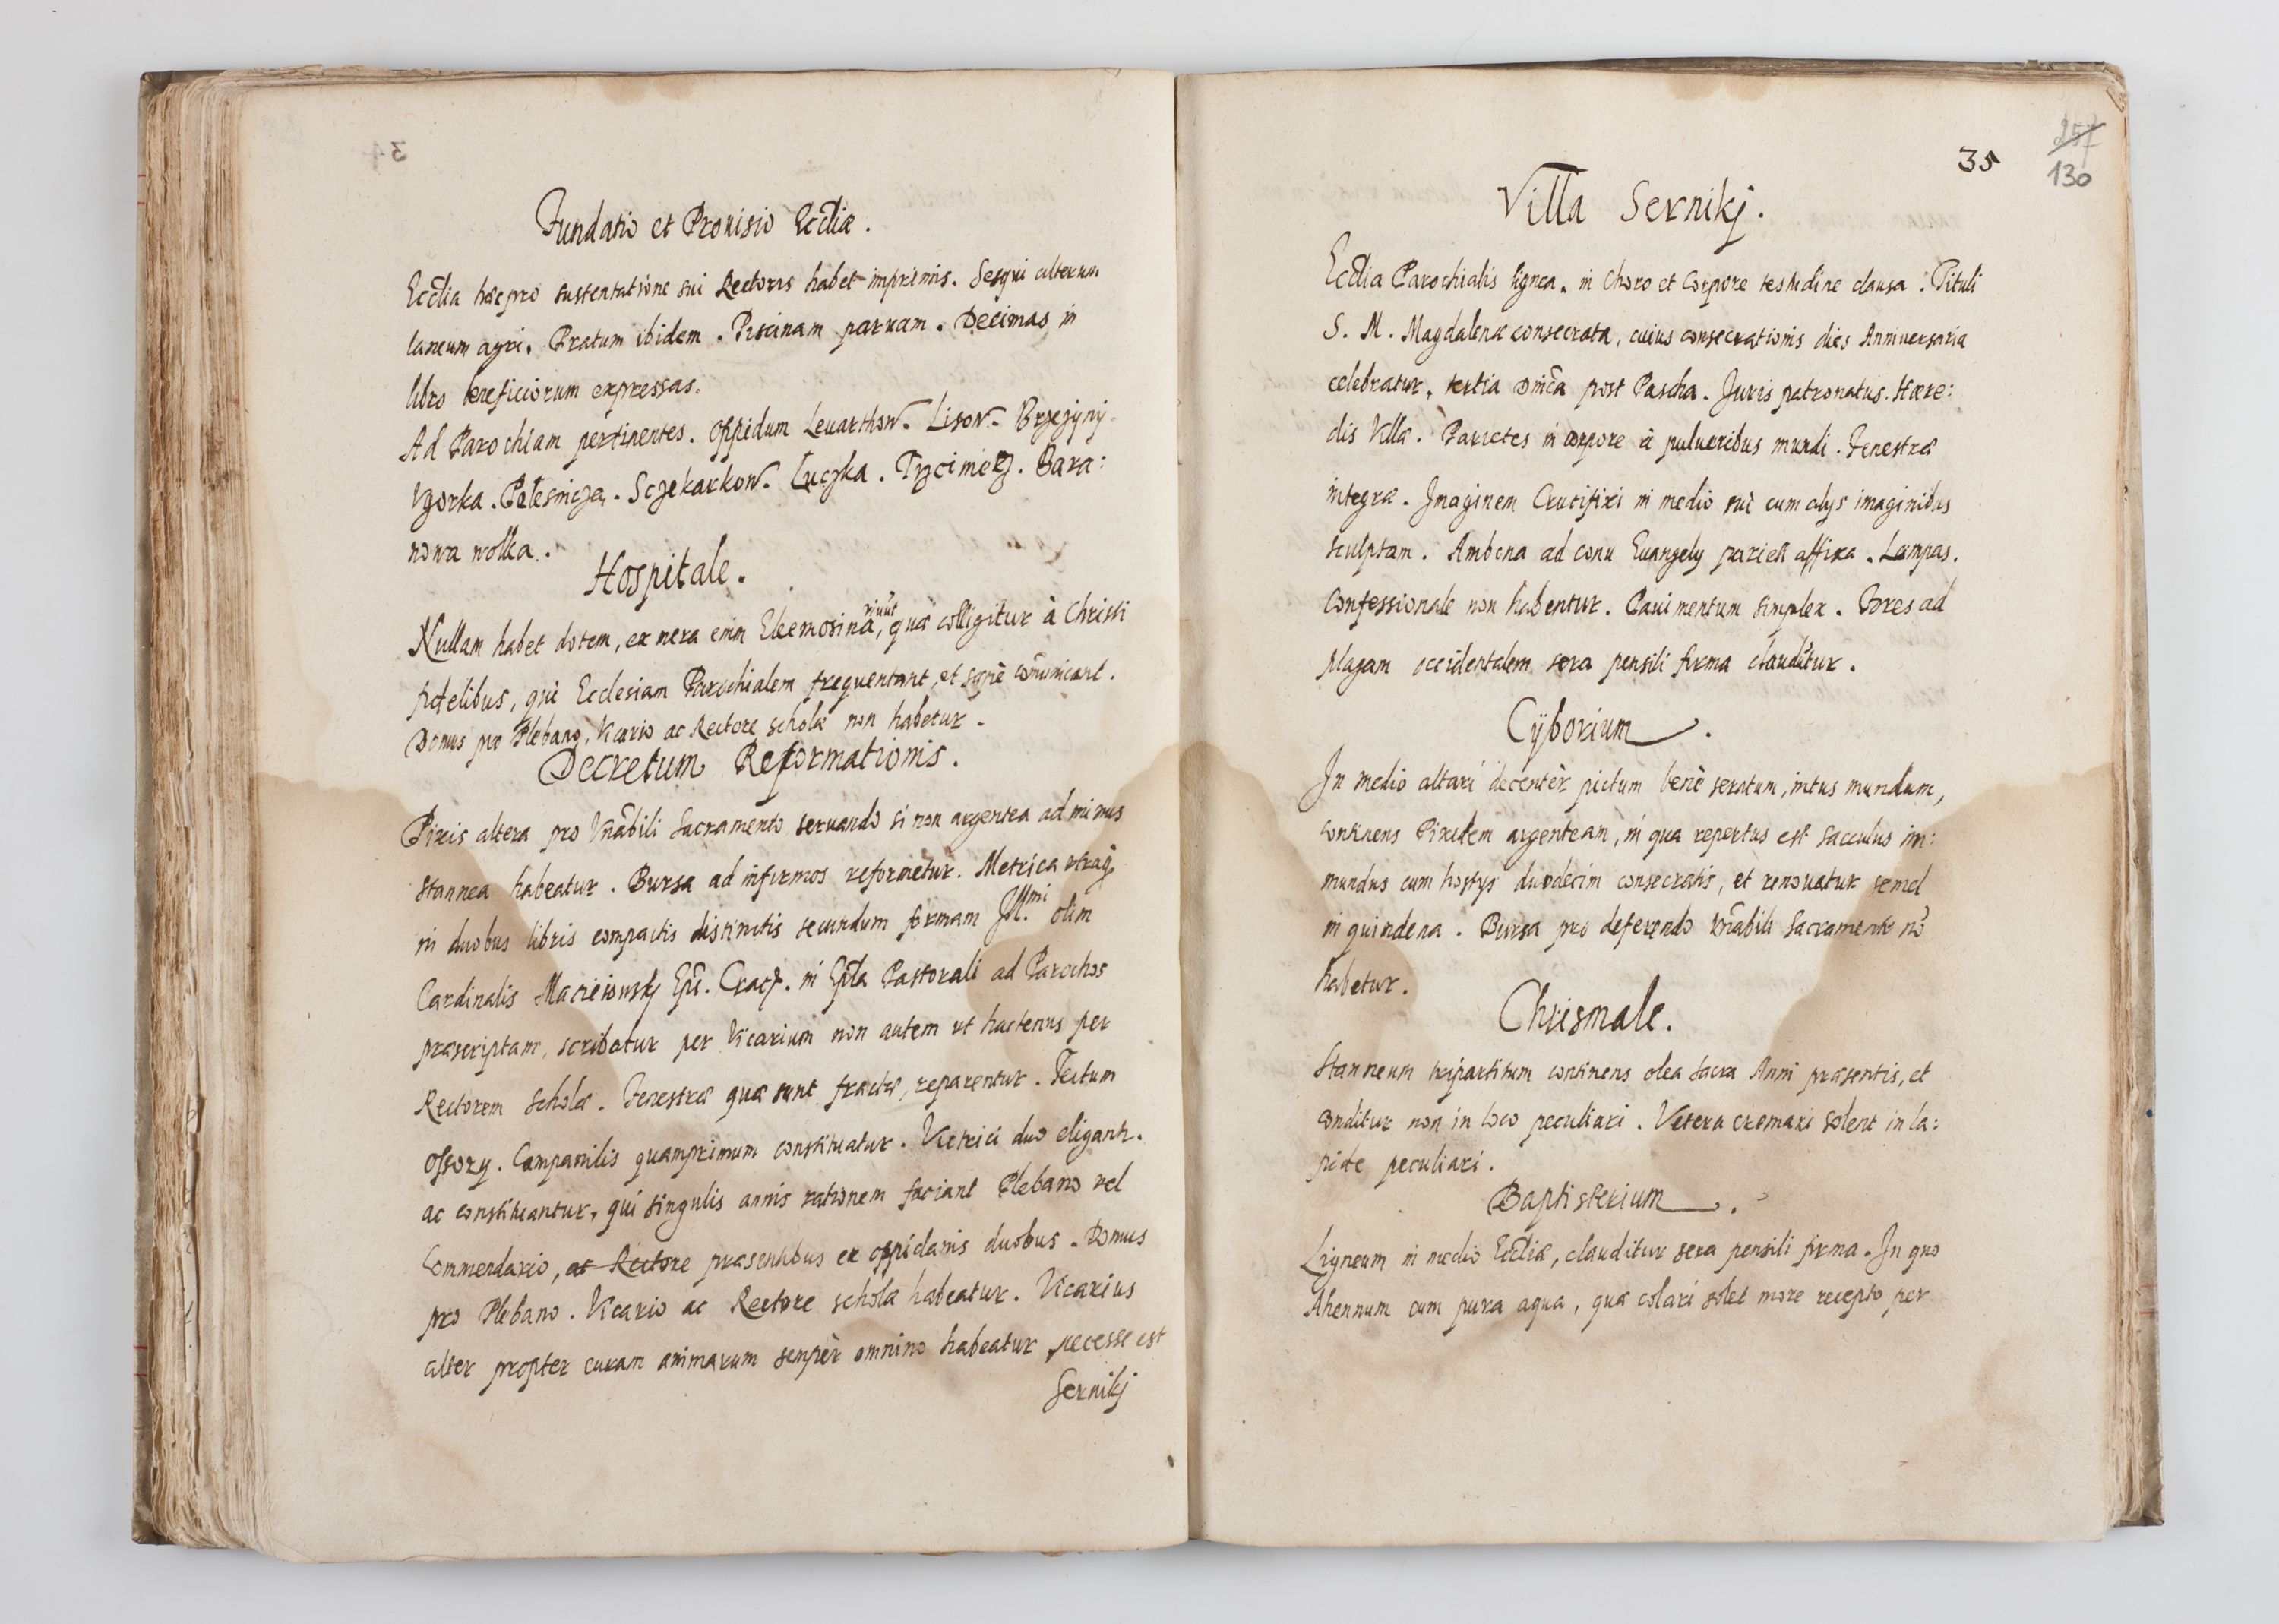 Fundatio et Prouisio Eccliæ.
Ecclia hæc pro sustentatione sui Rectoris habet imprimis. Sesqui alterum
laneum agri. Pratum ibidem. Piscinam paruam. Decimas in
libro beneficiorum expressas.
Ad Parochiam pertinentes. Oppidum Leuarthow. Lisow. Brzezyny.
Vgorka. Sczekarkow. Luczka. Trzciniecz. Bara:
nowa wolka.
Hospitale.
Nullam habet dotem, ex mera enim Eleemosina viuut, quæ colligitur à Christi
fidelibus, qui Ecclesiam Parochialem frequentant, et sæpè comunicant.
Domus pro Plebano, Vicario ac Rectore scholæ non habetur.
Decretum Reformationis.
Pixis altera pro Vnabili Sacramento seruando si non argentea ad minus
stannea habeatur. Bursa ad infirmos reformetur. Metrica vtraq
in duobus libris compactis distinctis secundum formam Ill.mi olim
Cardinalis Macieiowsky Epi. Crac. in Epla Pastorali ad Parochos
præscriptam, scribatur per Vicarium non autem vt hactenus per
Rectorem Scholæ. Fenestræ quæ sunt fractæ, reparentur. Tectum
Ossorij. Campanilis quamprimum constituatur. Vitrici duo eligantr.
ac constituantur, qui singulis annis rationem faciant Plebano vel
Commendario, ac Rectore præsentibus ex oppidanis duobus. Domus
pro Plebano. Vicario ac Rectore scholæ habeatur. Vicarius
alter propter curam animarum sempèr omnino habeatur necesse est
Sernikj
35
257
130
Villa Sernikj.
Ecclia Parochialis lignea, in Choro et Corpore testudine clausa: Tituli
S. M. Magdalenæ consecrata, cuius consecrationis dies Anniuersaria
celebratur, tertia Dnica post Pascha. Juris patronatus. Hære:
dis Villæ. Parietes in corpore à pulueribus mundi. Fenestræ
integræ. Imaginem Crucifixi in medio sui cum alijs imaginibus
sculptam. Ambona ad conu Euangelij parieti affixa. Lampas.
Confessionale non habentur. Pauimentum simplex. Fores ad
plagam occidentalem sera pensili firma clauditur.
Cyborium.
In medio altari decentèr pictum benè seratum, intus mundum,
continens Pixidem argenteam, in qua repertus est sacculus im:
mundus cum hostijs duodecim consecratis, et renouatur semel
in quindena. Bursa pro deferendo Vnabili Sacramento no
habetur.
Chrismale.
Stanneum tripartitum continens olea sacra Anni præsentis, et
conditur non in loco peculiari. Vetera cremari solent in la:
pide peculiari.
Baptisterium.
Ligneum in medio Eccliæ, clauditur sera pensili firma. In quo
Ahennum cum pura aqua, quæ colari solet more recepto per